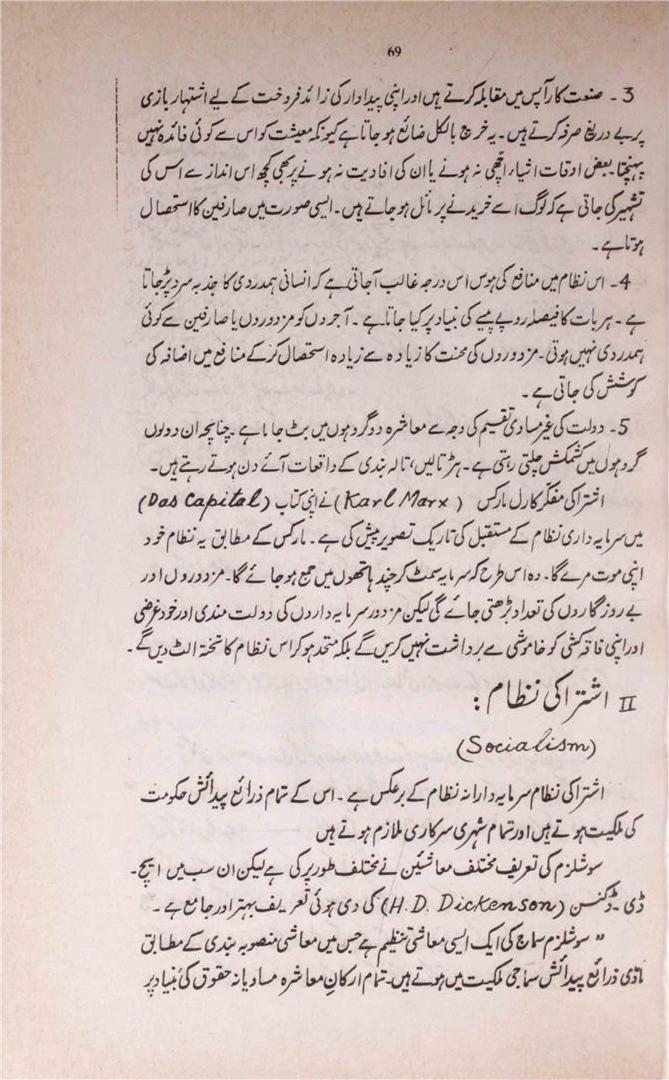 69
3 - صنعت کار آپس میں مقابلہ کرتے ہیں اور اپنی پیداوار کی زائد فروخت کے لیے اشتہار بازی
پر بے دریغ صرفہ کرتے ہیں۔ یہ خرچ بالکل ضائع ہو جاتا ہے کیونکہ معیشت کو اس سے کوئی فائدہ نہیں
پہنچتا۔ بعض اوقات اشیاء اچھی نہ ہونے یا ان کی افادیت نہ ہونے پر بھی کچھ اس انداز سے اس کی
تشہیر کی جاتی ہے کہ لوگ اسے خریدنے پر مائل ہو جاتے ہیں۔ ایسی صورت میں صارفین کا استحصال
ہوتا ہے۔
4 - اس نظام میں منافع کی ہوس اس درجہ غالب آجاتی ہے کہ انسانی ہمدردی کا جذبہ سرد پڑ جاتا
ہے۔ ہر بات کا فیصلہ روپے پیسے کی بنیاد پر کیا جاتا ہے۔ آجروں کو مزدوروں یا صارفین سے کوئی
ہمدردی نہیں ہوتی۔ مزدوروں کی محنت کا زیادہ سے زیادہ استحصال کر کے منافع میں اضافہ کی
کوشش کی جاتی ہے۔
5 - دولت کی غیر مساوی تقسیم کی وجہ سے معاشرہ دو گروہوں میں بٹ جاتا ہے۔ چنانچہ ان دونوں
گروہوں میں کشمکش چلتی رہتی ہے۔ ہڑتالیں، تالہ بندی کے واقعات آئے دن ہوتے رہتے ہیں۔
اشتراکی مفکر کارل مارکس (Karl Marx) نے اپنی کتاب (Das Capital)
میں سرمایہ داری نظام کے مستقبل کی تاریک تصویر پیش کی ہے۔ مارکس کے مطابق یہ نظام خود
اپنی موت مرے گا۔ وہ اس طرح کہ سرمایہ سمٹ کر چند ہاتھوں میں جمع ہو جائے گا۔ مزدوروں اور
بے روزگاروں کی تعداد بڑھتی جائے گی لیکن مزدور سرمایہ داروں کی دولت مندی اور خود غرضی
اور اپنی فاقہ کشی کو خاموشی سے برداشت نہیں کریں گے بلکہ متحد ہو کر اس نظام کا تختہ الٹ دیں گے۔
II اشتراکی نظام :
(Socialism)
اشتراکی نظام سرمایہ دارانہ نظام کے برعکس ہے۔ اس کے تمام ذرائع پیدائش حکومت
کی ملکیت ہوتے ہیں اور تمام شہری سرکاری ملازم ہوتے ہیں
سوشلزم کی تعریف مختلف معاشئین نے مختلف طور پر کی ہے لیکن ان سب میں ایچ۔
ڈی۔ ڈکنسن (H. D. Dickenson) کی دی ہوئی تعریف بہتر اور جامع ہے۔
"سوشلزم سماج کی ایک ایسی معاشی تنظیم ہے جس میں معاشی منصوبہ بندی کے مطابق
مادّی ذرائع پیدائش سماجی ملکیت میں ہوتے ہیں۔ تمام ارکانِ معاشرہ مساویانہ حقوق کی بنیاد پر